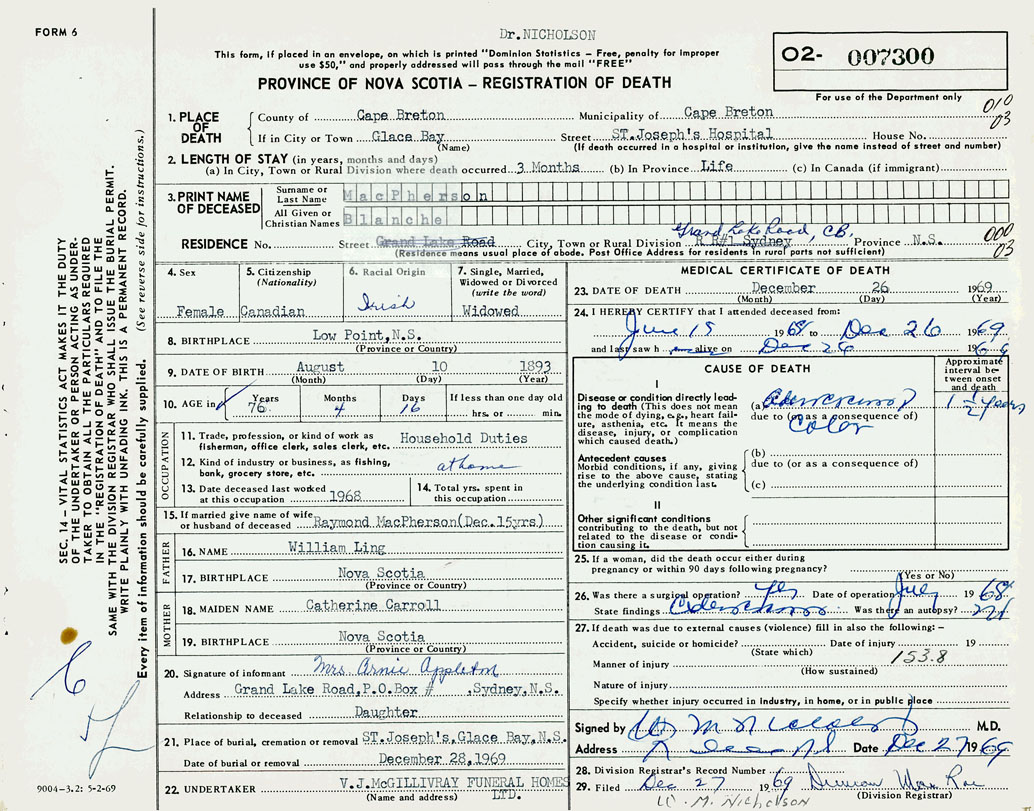 FORM 6
Dr. NICHOLSON
This form, if placed in an envelope, on which is printed "Dominion Statistics – Free, penalty for improper
use $50," and properly addressed will pass through the mail "FREE"
PROVINCE OF NOVA SCOTIA – REGISTRATION OF DEATH
O2- 007300
For use of the Department only
010
03
1. PLACE OF DEATH
County of Cape Breton Municipality of Cape Breton
If in City or Town Glace Bay Street ST.Joseph's Hospital House No.
(Name) (If death occurred in a hospital or institution, give the name instead of street and number)
2. LENGTH OF STAY (in years, months and days)
(a) In City, Town or Rural Division where death occurred 3 Months (b) In Province Life (c) In Canada (if immigrant)
3. PRINT NAME OF DECEASED
Surname or Last Name MacPherson
All Given or Christian Names Blanche
Grand Lake Road, C.B.
RESIDENCE No. Street Grand Lake Road City, Town or Rural Division R R#1 Sydney Province N.S.
(Residence means usual place of abode. Post Office Address for residents in rural parts not sufficient)
000
03
4. Sex
Female
5. Citizenship (Nationality)
Canadian
6. Racial Origin
Irish
7. Single, Married, Widowed or Divorced (write the word)
Widowed
8. BIRTHPLACE Low Point,N.S.
(Province or Country)
9. DATE OF BIRTH August 10 1893
(Month) (Day) (Year)
10. AGE in Years 76 Months 4 Days 16 If less than one day old
hrs. or min.
OCCUPATION
11. Trade, profession, or kind of work as fisherman, office clerk, sales clerk, etc. Household Duties
12. Kind of industry or business, as fishing, bank, grocery store, etc. at home
13. Date deceased last worked at this occupation 1968
14. Total yrs. spent in this occupation
15. If married give name of wife or husband of deceased Raymond MacPherson(Dec.15yrs)
FATHER
16. NAME William Ling
17. BIRTHPLACE Nova Scotia
(Province or Country)
MOTHER
18. MAIDEN NAME Catherine Carroll
19. BIRTHPLACE Nova Scotia
(Province or Country)
20. Signature of informant Mrs. Arnie Appleton
Address Grand Lake Road,P.O.Box # ,Sydney,N.S.
Relationship to deceased Daughter
21. Place of burial, cremation or removal ST.Joseph's,Glace Bay,N.S.
Date of burial or removal December 28,1969
22. UNDERTAKER V.J.McGILLIVRAY FUNERAL HOMES
(Name and address) LTD.
MEDICAL CERTIFICATE OF DEATH
23. DATE OF DEATH December 26 1969
(Month) (Day) (Year)
24. I HEREBY CERTIFY that I attended deceased from:
June 15 1968 to Dec 26 1969
and last saw h alive on Dec 26 1969
CAUSE OF DEATH
Approximate interval between onset and death
I
Disease or condition directly leading to death (This does not mean the mode of dying, e.g., heart failure, asthenia, etc. It means the disease, injury, or complication which caused death.)
(a)
due to (or as a consequence of)
Colon
1 1/2 years
Antecedent causes
Morbid conditions, if any, giving rise to the above cause, stating the underlying condition last.
(b)
due to (or as a consequence of)
(c)
II
Other significant conditions
contributing to the death, but not related to the disease or condition causing it.
25. If a woman, did the death occur either during
pregnancy or within 90 days following pregnancy?
(Yes or No)
26. Was there a surgical operation? Yes Date of operation July 1968
State findings Was there an autopsy?
27. If death was due to external causes (violence) fill in also the following: –
Accident, suicide or homicide? Date of injury 19
(State which)
Manner of injury 153.8
(How sustained)
Nature of injury
Specify whether injury occurred in industry, in home, or in public place
Signed by M.D.
Address Date Dec 27 1969
28. Division Registrar's Record Number
29. Filed Dec 27 1969 Duncan MacRae
(Division Registrar)
W. M. Nicholson
SEC. 14 – VITAL STATISTICS ACT MAKES IT THE DUTY
OF THE UNDERTAKER OR PERSON ACTING AS UNDER-
TAKER TO OBTAIN ALL THE PARTICULARS REQUIRED
IN THE "REGISTRATION OF DEATH" AND TO FILE THE
SAME WITH THE DIVISION REGISTRAR WHO SHALL ISSUE THE BURIAL PERMIT.
WRITE PLAINLY WITH UNFADING INK. THIS IS A PERMANENT RECORD.
Every item of information should be carefully supplied. (See reverse side for instructions.)
9004-3.2: 5-2-69